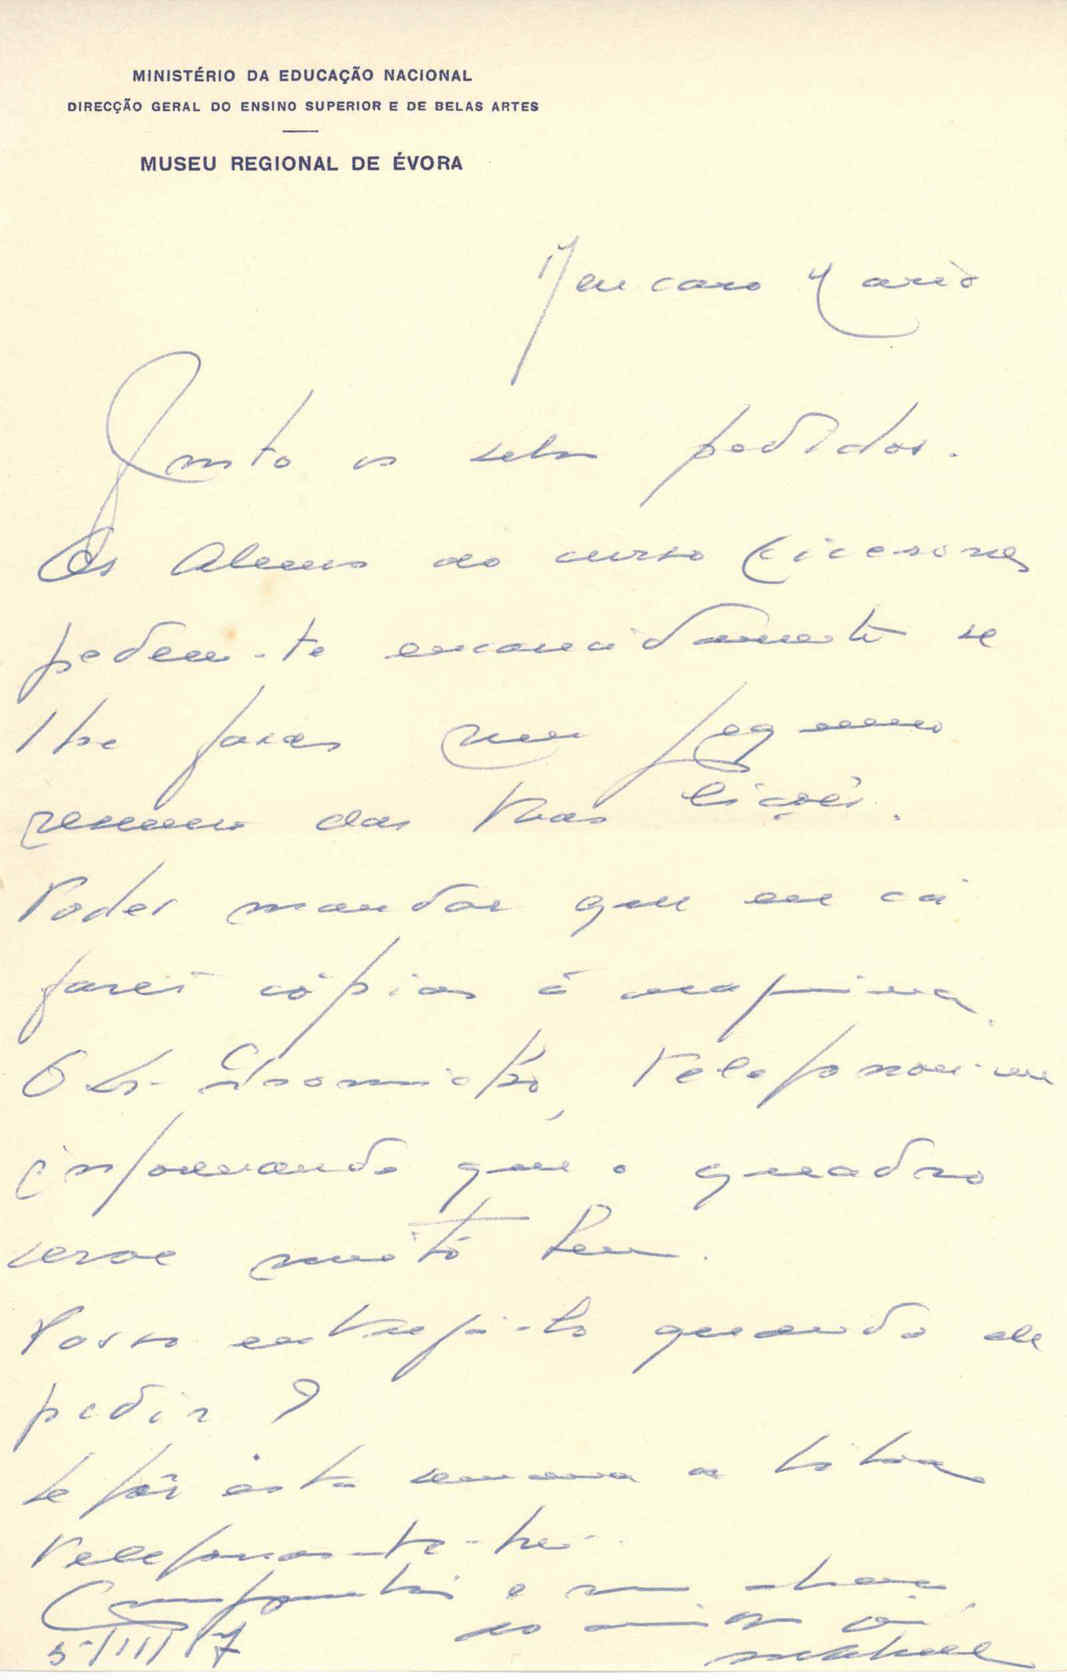 MINISTÉRIO DA EDUCAÇÃO NACIONAL
DIRECÇÃO GERAL DO ENSINO SUPERIOR E DE BELAS ARTES
MUSEU REGIONAL DE ÉVORA
Meu caro Mario
Junto os selos pedidos.
Os Alunos do curso Cicerones
pedem-te encarecidamente se
lhe fazes um pequeno
resumo das tuas lições.
Podes mandar que eu cá
farei cópias á maquina.
O Sr. telefonou-me
informando que o quadro
serve muito bem.
Posso entregá-lo quando ele
pedir?
Se fôr esta semana a Lisboa
telefonar-te-hei.
Cumprimentos e um abraço
do amigo
5/III/